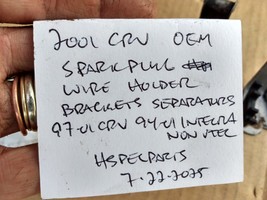 2001 CRV OEM
SPARKPLUG
WIRE HOLDER
BRACKETS SEPARATORS
97-01 CRV 94-01 INTEGRA
NON VTEC
HSPECPARTS
7-22-2025